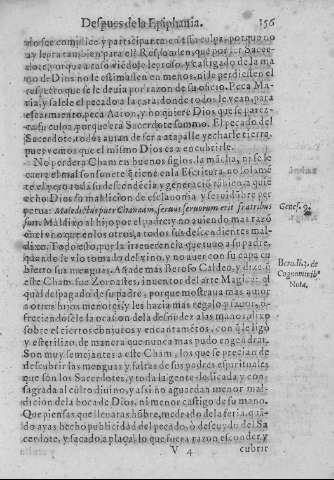 Despues de la Epiphania. 156
no se comission y participante en essa culpa: porque no
ay lepra tambien para el? Respondese, que por ser Sacer-
dote: porque a caso viendole leproso, y castigado de la ma
no de Dios no le estimassen en menos, ni le perdiessen el
respecto que se le deuia por razon de su oficio. Peca Ma
ria, y salele el pecado a la cara, donde todos le vean, para
escarmiento, peca Aaron, y no quiere Dios que se parez-
ca su culpa, porque era Sacerdote summo. El pecado del
Sacerdote, todos auian de ser a atapalle y echarle tierra,
pues vemos que el mismo Dios es a encubrirle.
No perdera Cham en buenos siglos la mácha, ni se le
caera el mal sonsonete q tiene en la Escritura, no solamē
te el pero toda su descendēcia y generació tābien, a quiē
echo Dios su maldicion de esclauonia y seruidūbre per
petua: Maledictus puer Chanaam, seruus seruorum erit fratribus
suis. Maldixo al hijo por el padre, y no auiendo mas razō
para el vno que para los otros, a todos sus descendientes mal-
dixo. Todo esto, por la irreuerencia que tuuo a su padre,
quando le vio tomado del vino, y no auer con su capa cu
bierto sus menguas. Añade mas Beroso Caldeo, y dize q
este Cham fue Zoroastes, inuentor del arte Magica: al
qual desapagado de su padre, porque mostraua mas amor
a otros hijos menores, y les hazia mas regalo
sobre el cierros conjuros y encantamētos, con q le ligò
y esterilizo, de manera que nunca mas pudo engendrar.
Son muy semejantes a este Cham, los que se precian de
descubrir las menguas y faltas de sus padres espirituales
que son los Sacerdotes, y toda la gente dedicada y con-
sagrada al culto diuino, y assi no aguarden menor mal-
dicion de la boca de Dios, ni menor castigo de su mano.
Que piensas que lleuaras hōbre, medrado de la feria, quā-
do ayas hecho publicidad del pecado, ò descuydo del Sa
cerdote, y sacado a plaça, lo que fuera razon esconder, y
V 4 cubrir
Genes. 9.
Cognominib
Nota.